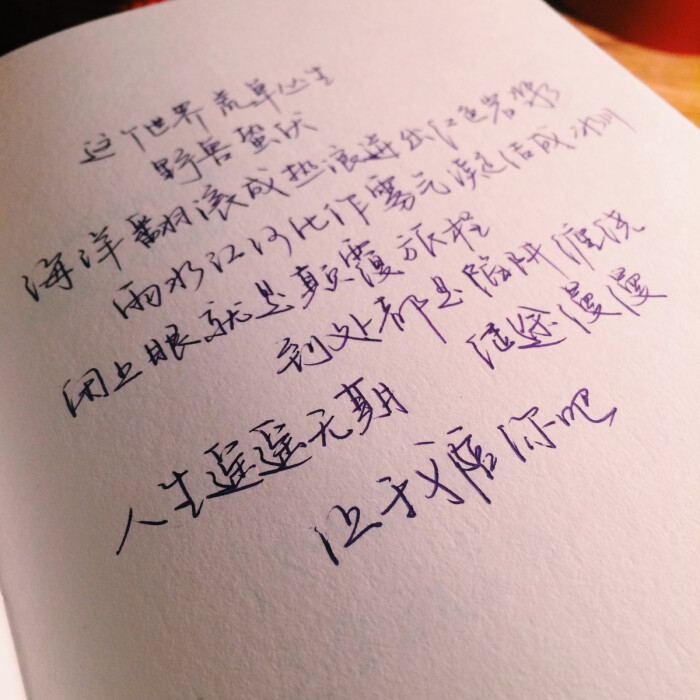 这个世界 荒草丛生
野兽蛰伏
海洋翻滚成热浪迸出红色岩浆
雨水江河化作雾气凝结成冰川
闭上眼就是颠覆旅程
到处都是陷阱缠绕
人生遥遥无期 征途漫漫
让我陪你吧